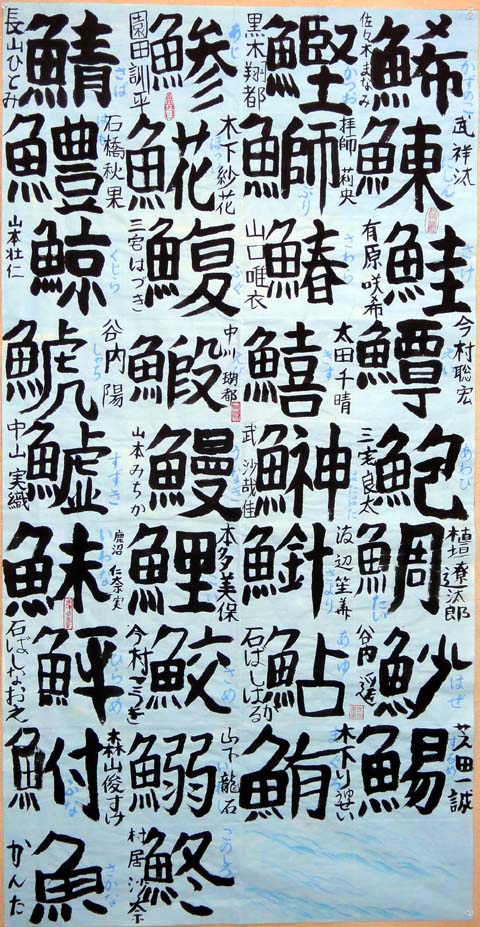 鯑
かずのこ
佐々木まなみ
鰊
にしん
武祥汰
鮭
さけ
有原咲希
鱏
えい
今村聡宏
鮑
あわび
三宅良太
鯛
たい
魦
はぜ
谷内遥
鯣
するめ
芝田一誠
鰹
かつお
黒木翔都
鰤
ぶり
拝師莉央
鰆
さわら
山口唯衣
鱚
きす
太田千晴
鰰
はたはた
武沙哉佳
さより
鮎
あゆ
石ばしはるか
鮪
まぐろ
木下りゅうせい
鯵
あじ
園田訓平
𩸽
ほっけ
木下紗花
鰒
ふぐ
三宅はづき
鰕
えび
中川瑚都
鰻
うなぎ
山本みちか
鯉
こい
本多美保
鮫
さめ
鰯
いわし
山下龍石
鮗
このしろ
鯖
さば
長山ひとみ
鱧
はも
石橋秋果
鯨
くじら
山本壮仁
鯱
しゃち
谷内陽
すずき
中山実織
鮇
いわな
鹿沼仁奈実
鮃
ひらめ
石ばしなおえ
鮒
ふな
森山俊すけ
魚
さかな
かんた